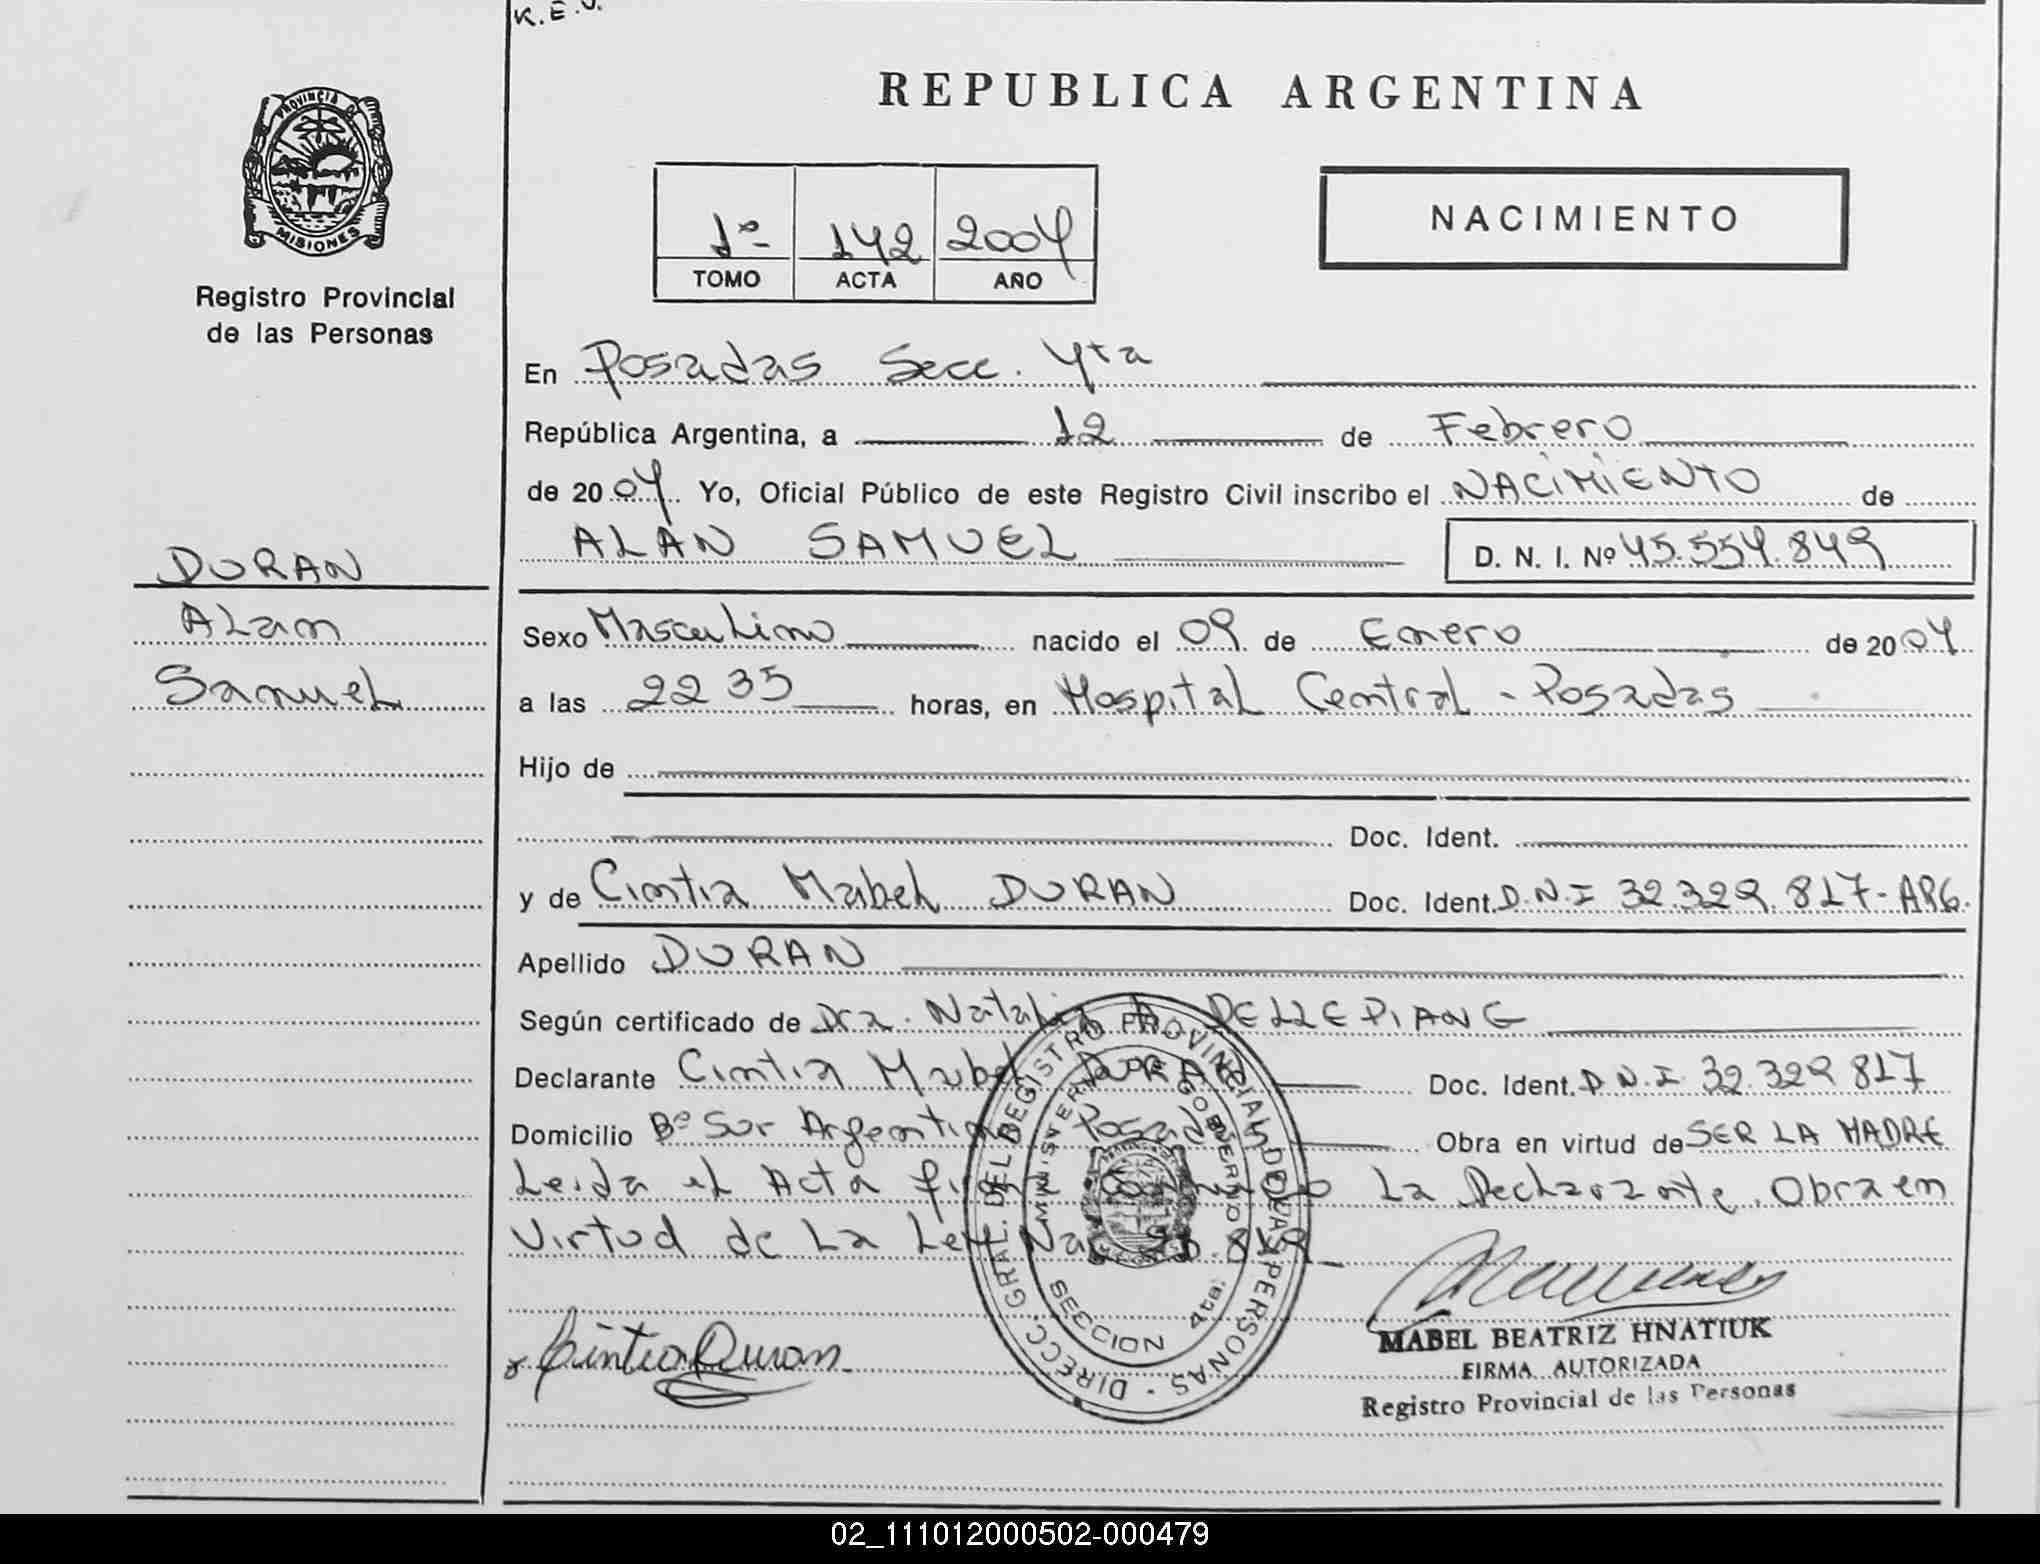 K.E.J.
REPUBLICA ARGENTINA
PROVINCIA DE
MISIONES
Registro Provincial
de las Personas
1º-
142
2004
TOMO
ACTA
AÑO
NACIMIENTO
En Posadas Secc. 4ta
República Argentina, a 12 de Febrero
de 2004 Yo, Oficial Público de este Registro Civil inscribo el NACIMIENTO de
ALAN SAMUEL D. N. I. Nº 45.554.849
DURAN
Alan
Samuel
Sexo Masculino nacido el 09 de Enero de 2004
a las 22 35 horas, en Hospital Central - Posadas
Hijo de
Doc. Ident.
y de Cintia Mabel DURAN Doc. Ident. D.N.I 32.329.817-ARG.
Apellido DURAN
Según certificado de Dra. Natalia A DELLEPIANE
Declarante Cintia Mabel DURAN Doc. Ident. D.N.I. 32.329 817
Domicilio Bº Sur Argentino Posadas Obra en virtud de SER LA MADRE
Leida el Acta firma conmigo La Declarante. Obra en
Virtud de La Ley Nac.
DIRECC. GRAL. DEL REGISTRO PROVINCIAL DE LAS PERSONAS
MINISTERIO DE GOBIERNO
SECCION 4ta.
Cintia Duran
MABEL BEATRIZ HNATIUK
FIRMA AUTORIZADA
Registro Provincial de las Personas
02_111012000502-000479